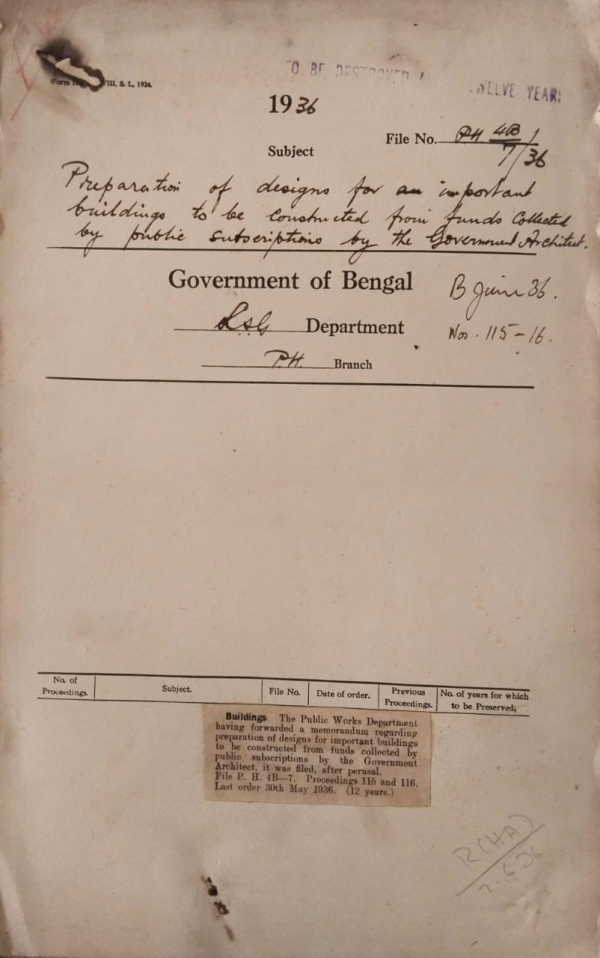 VIII, S. L., 1934
TO BE DESTROYED
TWELVE YEARS
1936
File No. PH 4B/1
7/36
Subject
Preparation of designs for an important
buildings to be constructed from funds collected
by public subscriptions by the Government Architect.
Government of Bengal
B June 36.
LSG Department
Nos. 115-16.
P.H. Branch
No. of Proceedings.
Subject.
File No.
Date of order.
Previous Proceedings.
No. of years for which to be Preserved.
Buildings The Public Works Department
having forwarded a memorandum regarding
preparation of designs for important buildings
to be constructed from funds collected by
public subscriptions by the Government
Architect, it was filed, after perusal.
File P. H. 4B—7. Proceedings 115 and 116.
Last order 30th May 1936. (12 years.)
R(HA)